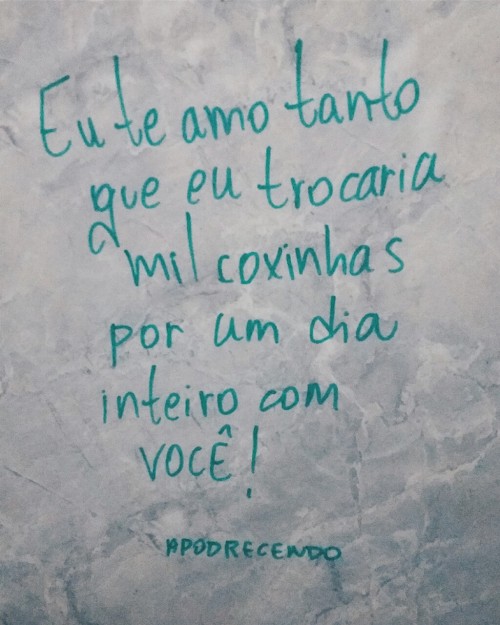 Eu te amo tanto
que eu trocaria
mil coxinhas
por um dia
inteiro com
VOCÊ!
APODRECENDO